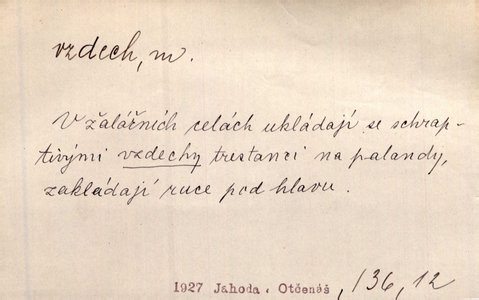 vzdech, m.
V žalářních celách ukládají se schrap-
tivými vzdechy trestanci na palandy,
zakládají ruce pod hlavu.
1927 Jahoda. Otčenáš, 136, 12